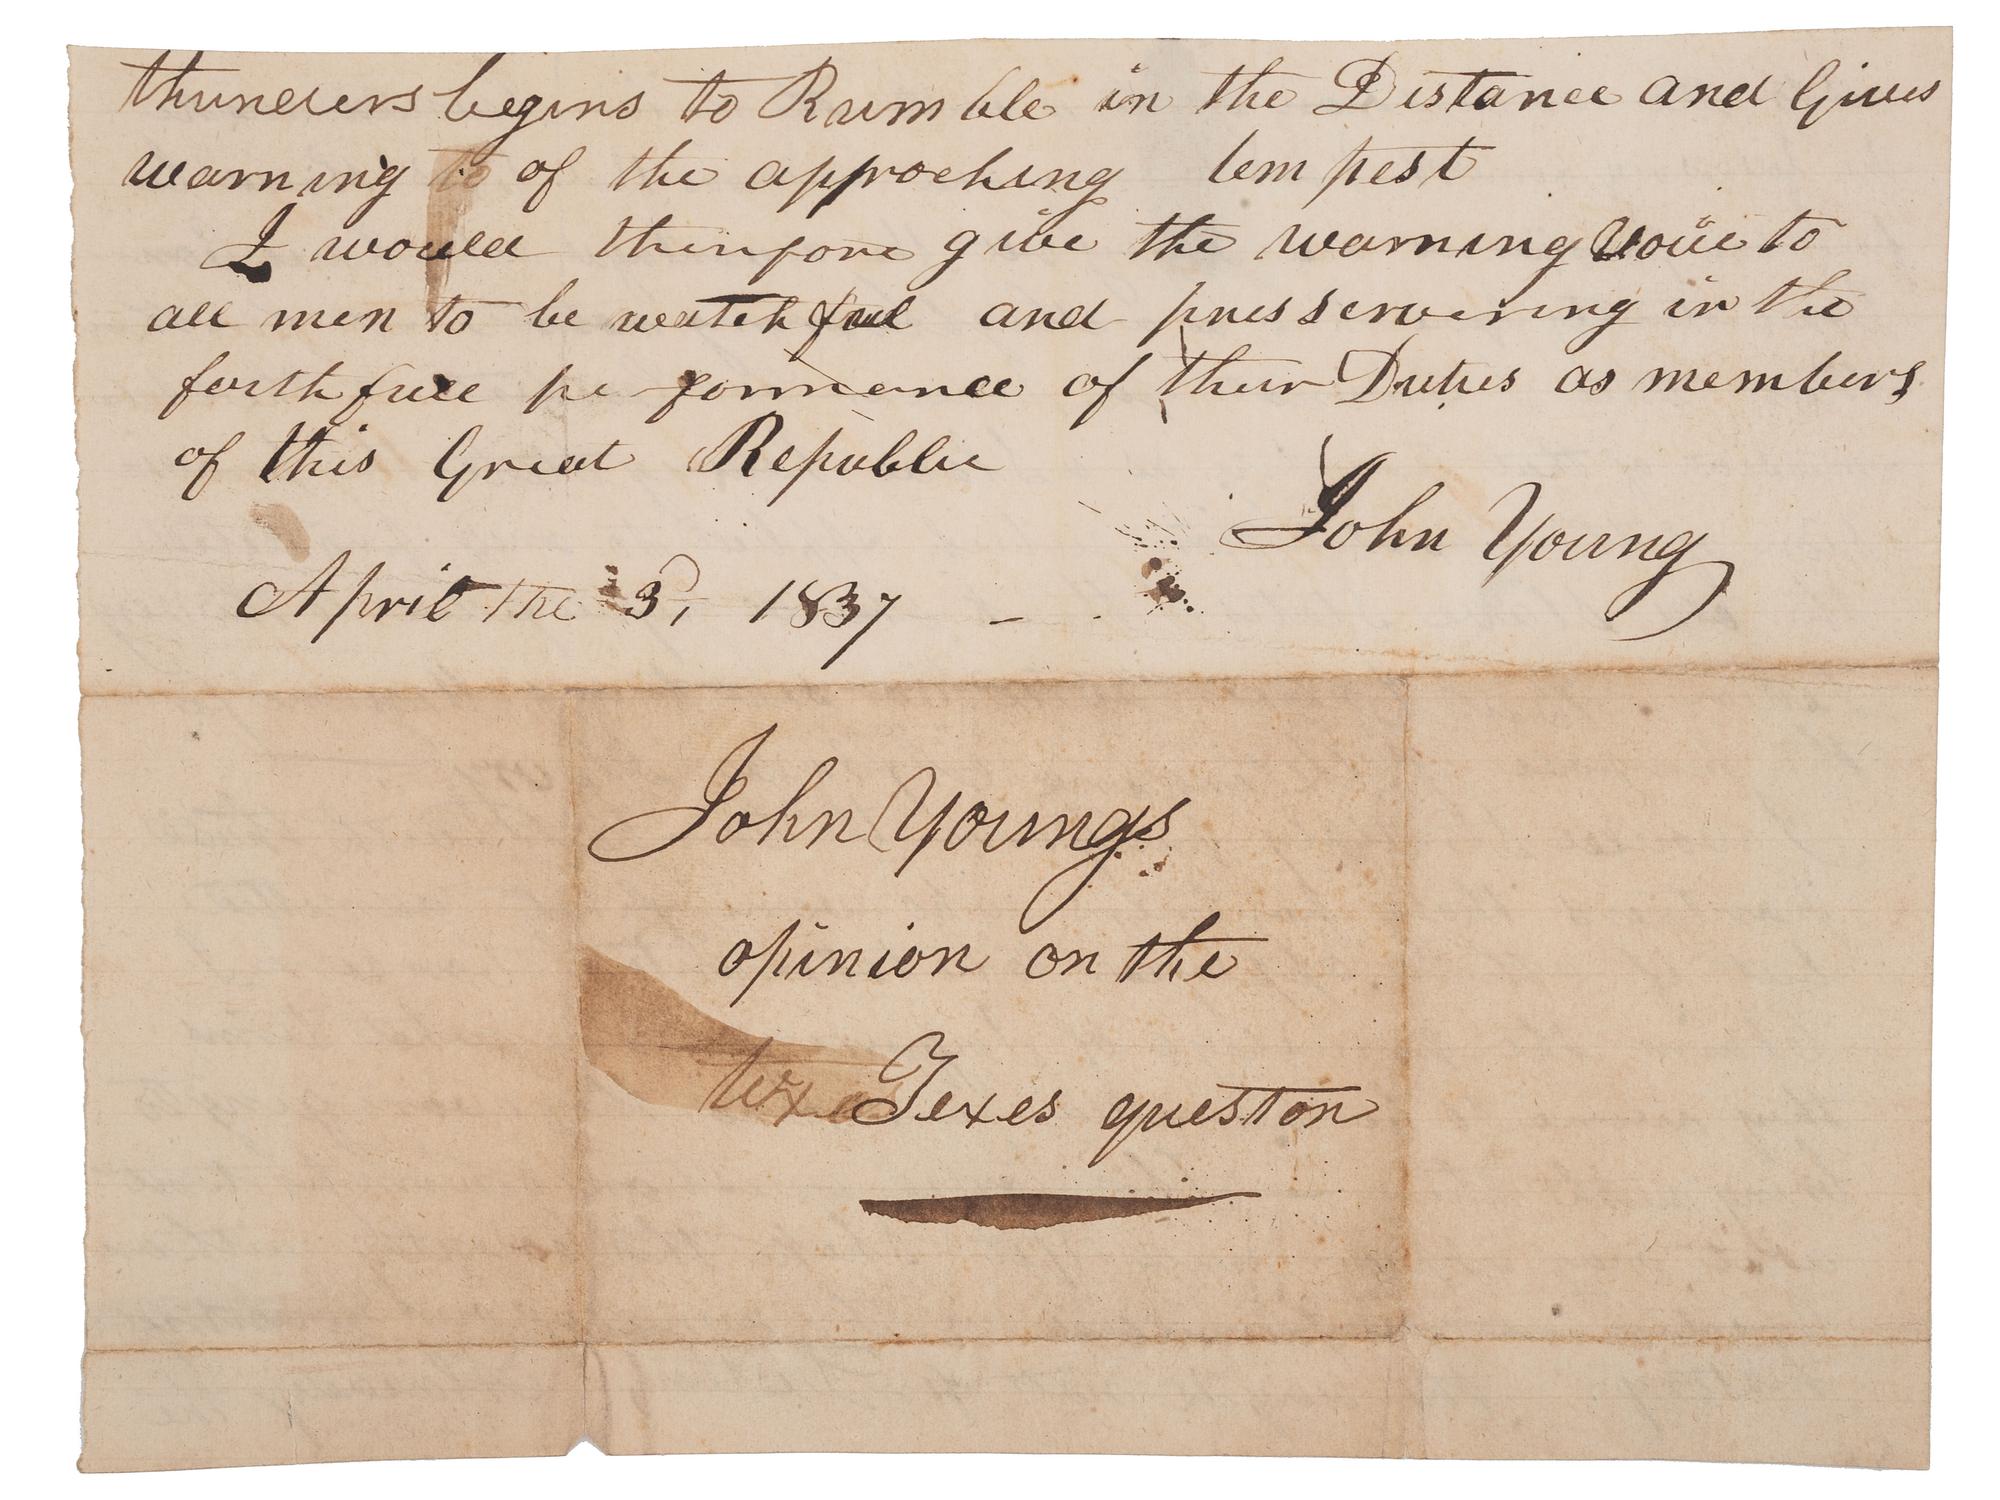 thunders begins to Rumble in the Distance and Gives
warning to of the approching tempest
I would therefore give the warning voice to
all men to be watchful and preservering in the
forthfull performance of their Duties as members
of this Great Republic
John Young
April the 3, 1837
John Youngs
opinion on the
texa Texes queston